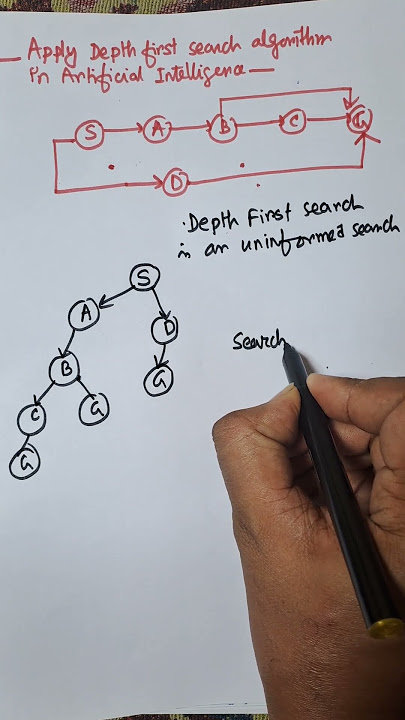 — Apply Depth first search algorithm
in Artificial Intelligence —
S A B C G
D
· Depth First search
is an uninformed search
S
A
D
B
Search
G
C G
G